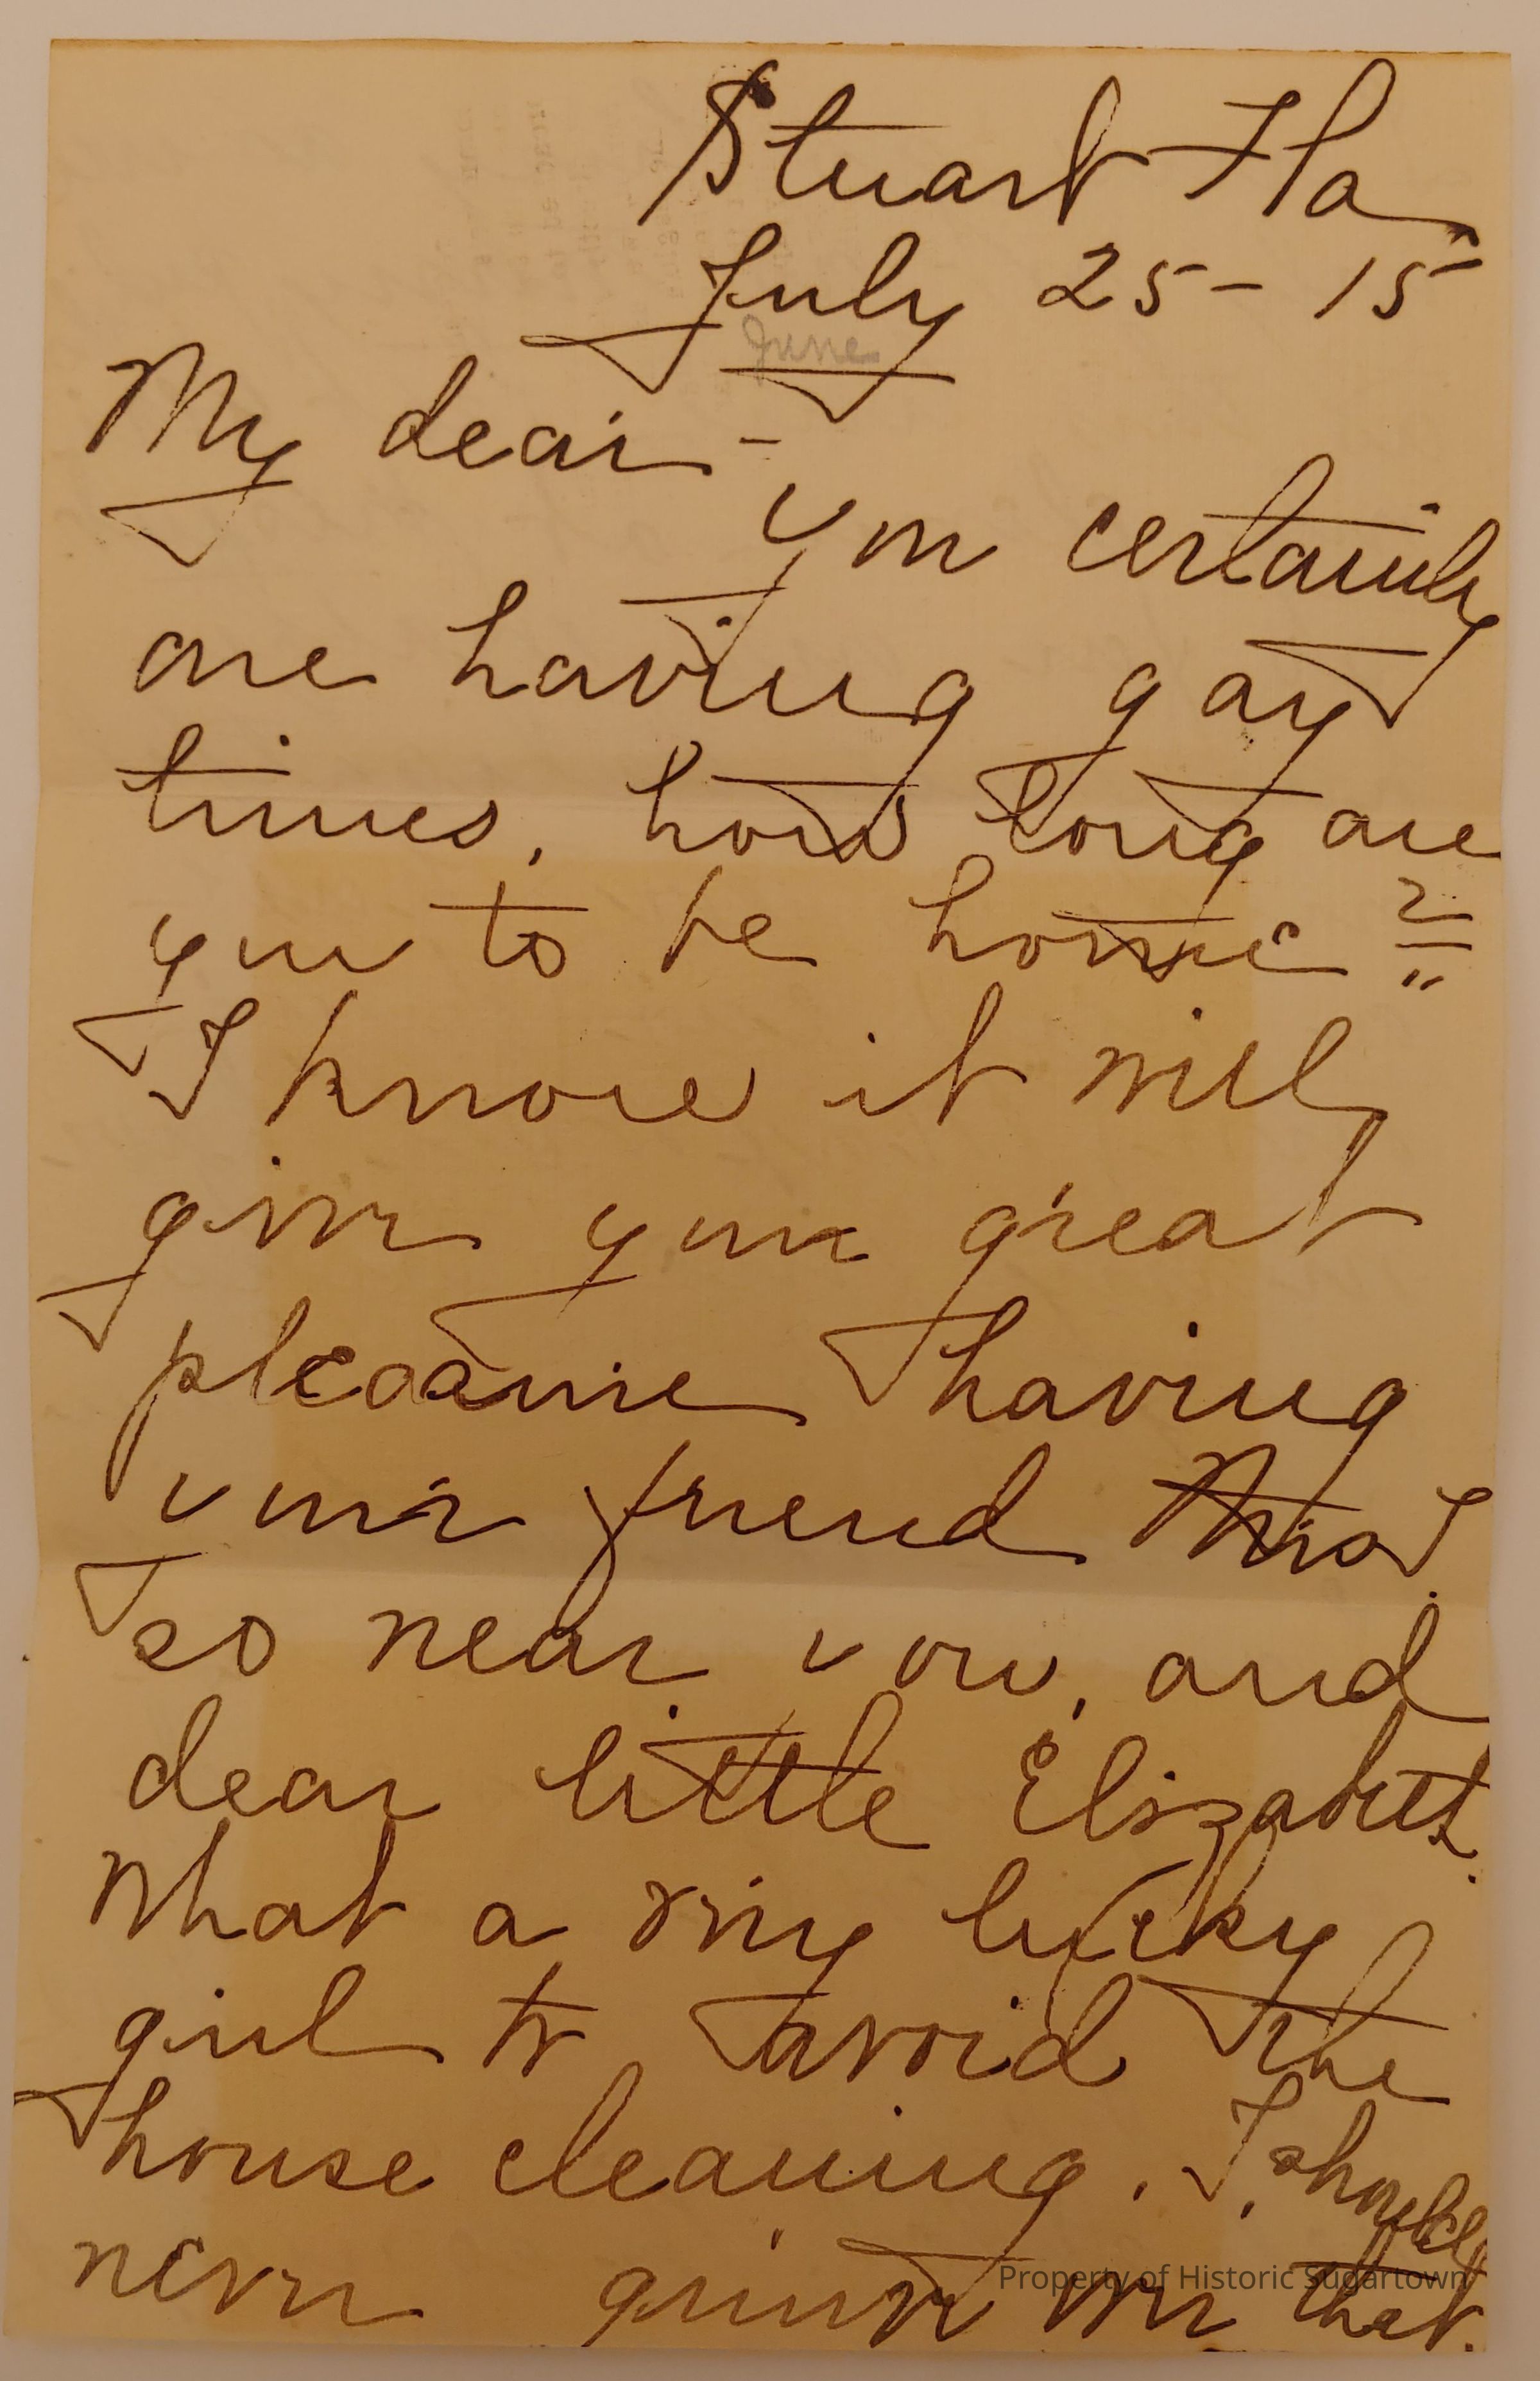 Stuart Fla
July 25 - 15
June
My dear -
you certainly
are having gay
times, how long are
you to be home?
I know it will
give you great
pleasure having
your friend Miss J.
so near you, and
dear little Elizabeth.
What a very lucky
girl to avoid the
house cleaning. I should
never grieve over that.
Property of Historic Sugartown